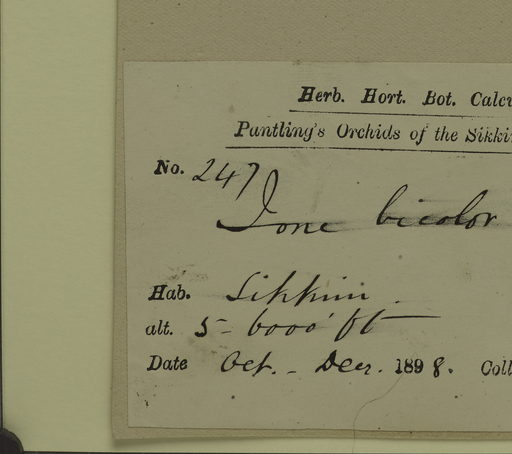 Herb. Hort. Bot. Calcu
Pantling's Orchids of the Sikki
No. 247
Ione bicolor
Hab. Sikkim.
alt. 5-6000' ft
Date Oct. - Decr. 1898. Coll